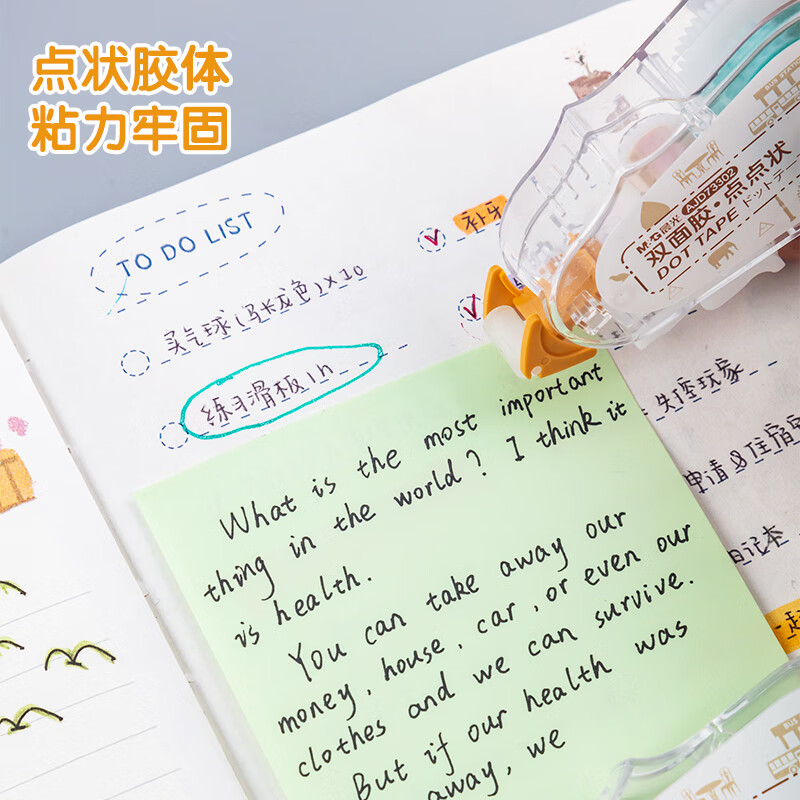 点状胶体
粘力牢固
TO DO LIST
买气球(马卡龙色)×10
练习滑板1h
补牙
M&G晨光 AJD73302
双面胶·点点状
DOT TAPE ドットテー
What is the most important
thing in the world? I think it
is health.
You can take away our
money, house, car, or even our
clothes and we can survive.
But if our health was
away, we
失踪玩家
申请&住宿
日记本
BUS